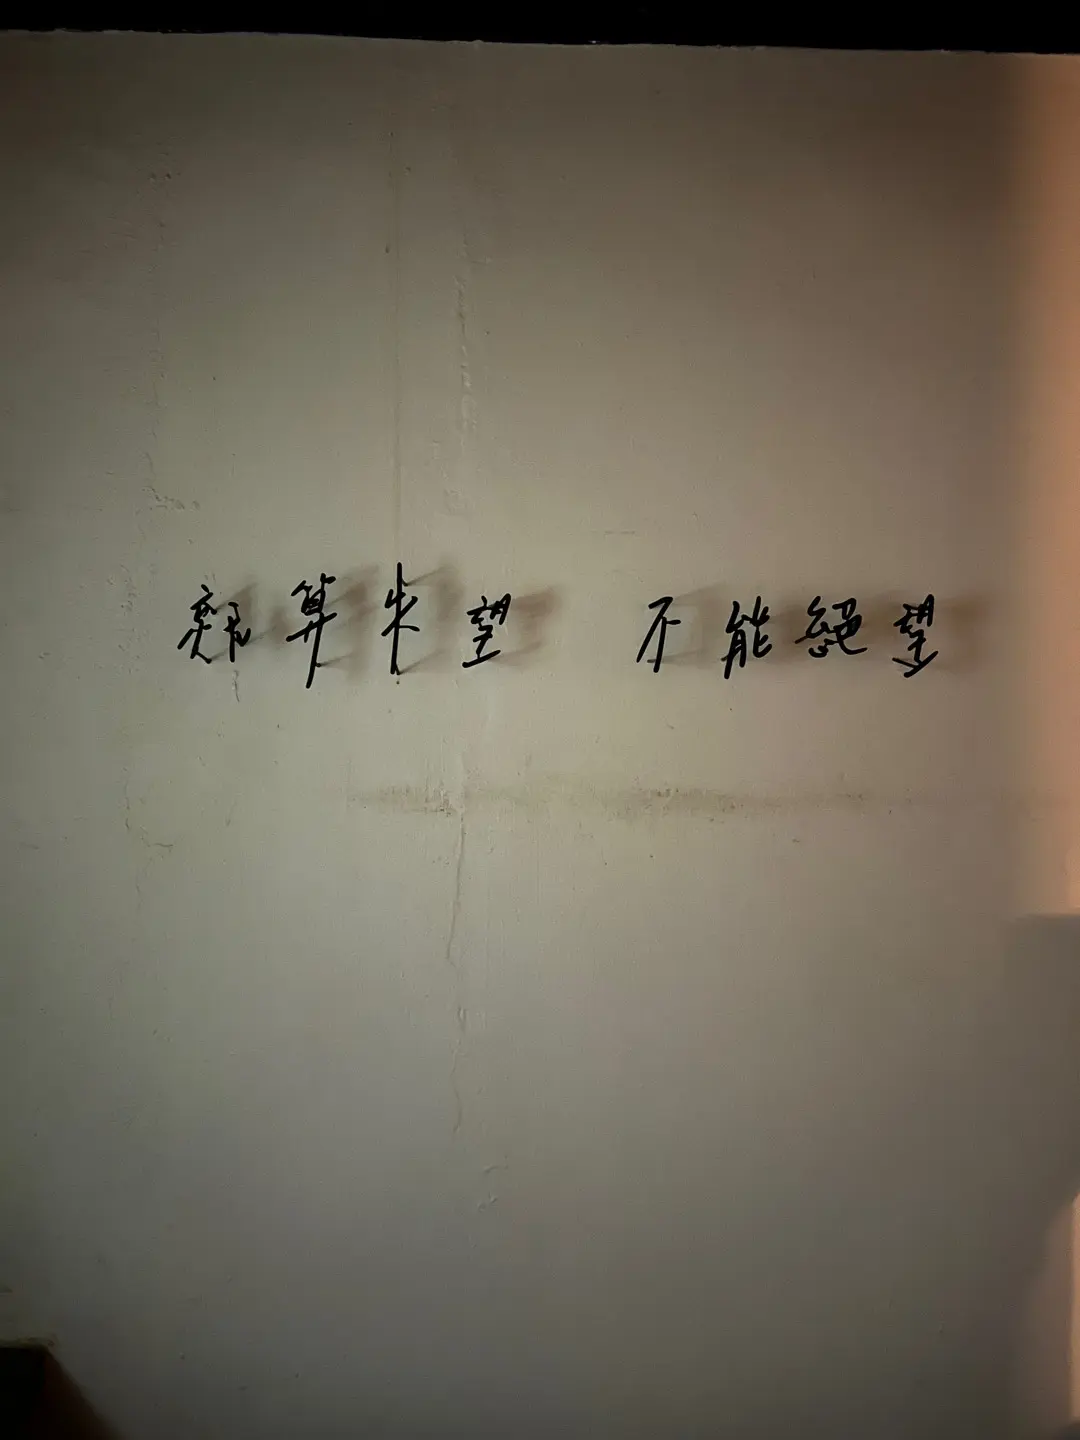 就算失望 不能絕望